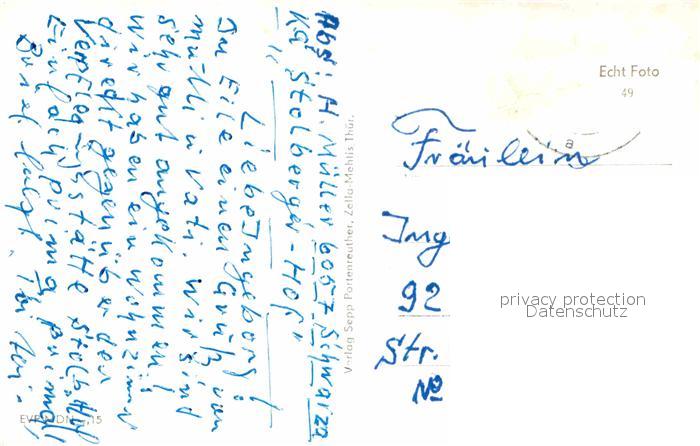 Abs: H. Müller 6057 Schwarza
"Stolberger-Hof"
Liebe Ingeborg!
In Eile einen Gruß von
Mutti u. Vati. Wir sind
sehr gut angekommen!
Wir haben ein Wohnzimmer
direkt gegenüber der
Verpflegungsstätte Stolb. Hof
Einfach prima prima!
Brief folgt.
Verlag Sepp Portenreuther, Zella-Mehlis Thür.
EVP MDN -,15
Echt Foto
49
Fräulein
Ing
92
Str.
No
privacy protection
Datenschutz